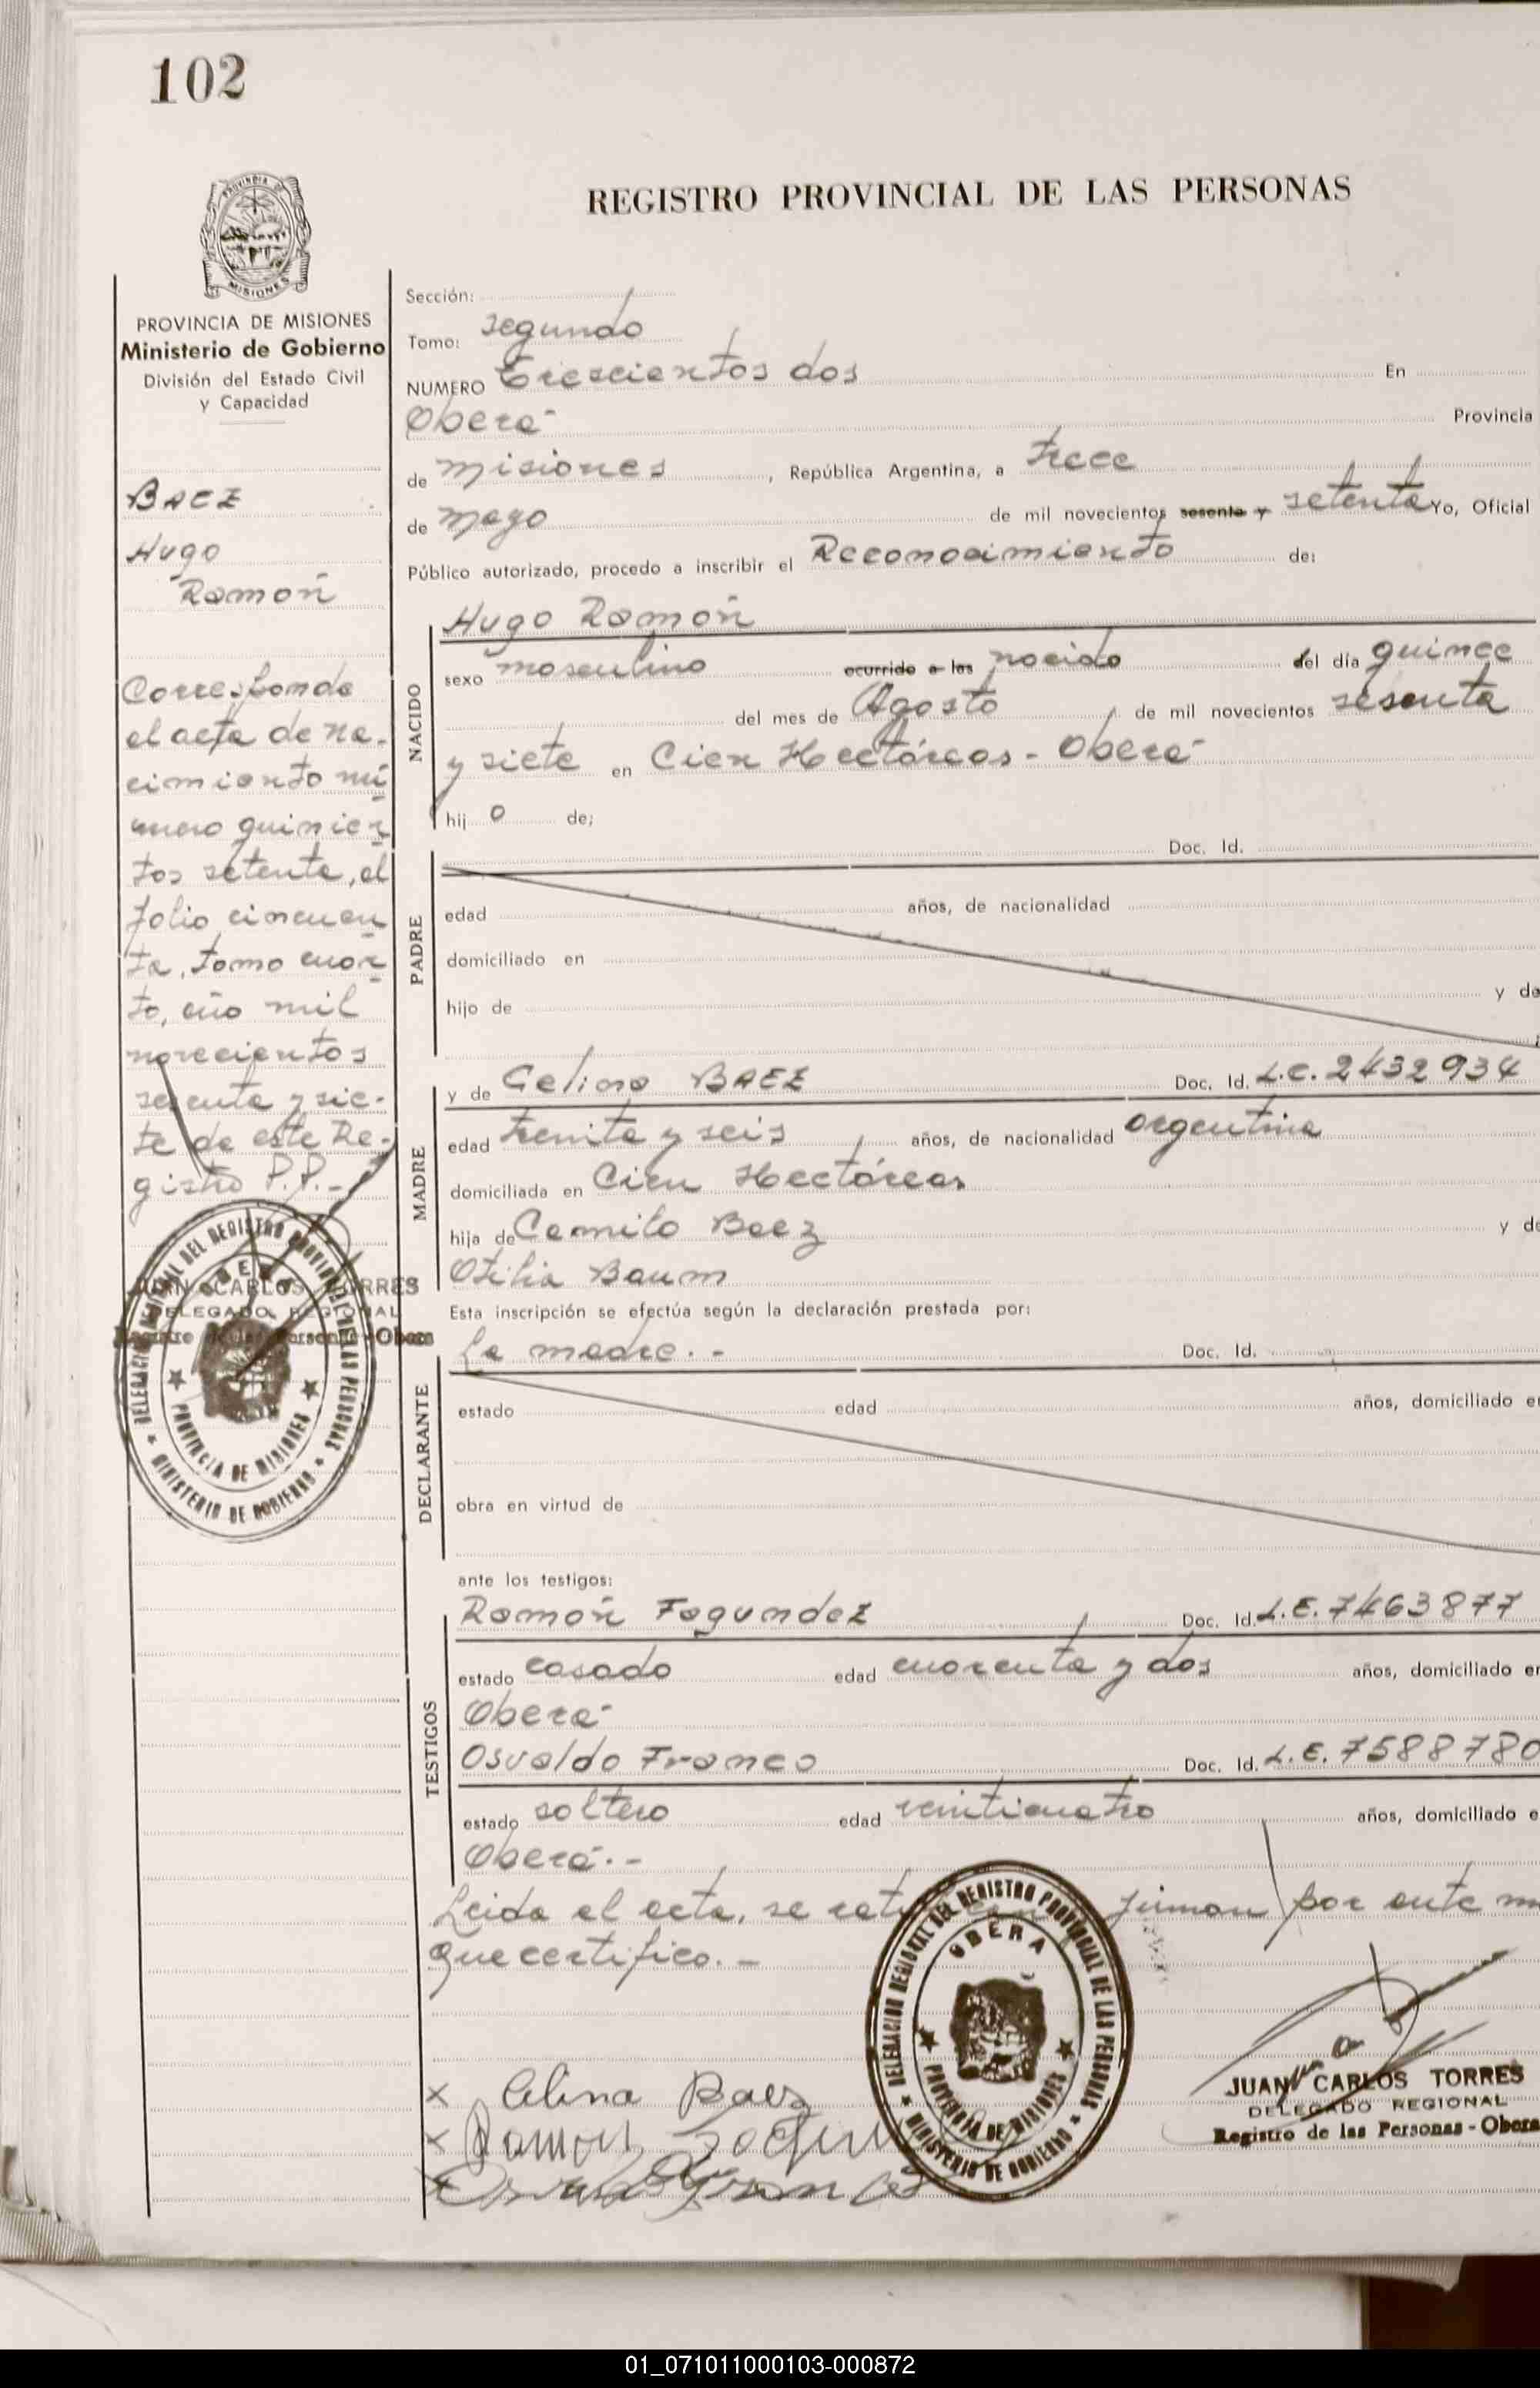 102
PROVINCIA DE
MISIONES
PROVINCIA DE MISIONES
Ministerio de Gobierno
División del Estado Civil
y Capacidad
BAEZ
Hugo
Ramón
Corresponde
al acta de na-
cimiento nú-
mero quinien-
tos setenta, al
folio cincuen-
ta, tomo cuar-
to, año mil
novecientos
sesenta y sie-
te de este Re-
gistro P.P.-
JUAN CARLOS TORRES
DELEGADO REGIONAL
Registro de las Personas - Obera
DELEGACION REGIONAL DEL REGISTRO PROVINCIAL DE LAS PERSONAS
OBERA
PROVINCIA DE MISIONES
MINISTERIO DE GOBIERNO
REGISTRO PROVINCIAL DE LAS PERSONAS
Sección:
Tomo: segundo
NUMERO Trescientos dos En
Oberá Provincia
de misiones, República Argentina, a trece
de mayo de mil novecientos sesenta y setenta Yo, Oficial
Público autorizado, procedo a inscribir el Reconocimiento de:
NACIDO
Hugo Ramón
sexo masculino ocurrido a las nacido del día quince
del mes de Agosto de mil novecientos sesenta
y siete en Cien Hectáreas - Oberá
hij o de;
PADRE
Doc. Id.
edad años, de nacionalidad
domiciliado en
hijo de y de
MADRE
y de Celina BAEZ Doc. Id. L.C. 2432934
edad treinta y seis años, de nacionalidad argentina
domiciliada en Cien Hectáreas
hija de Camilo Baez y de
Otilia Baum
Esta inscripción se efectúa según la declaración prestada por:
DECLARANTE
La madre.- Doc. Id.
estado edad años, domiciliado en
obra en virtud de
ante los testigos:
TESTIGOS
Ramón Fagundez Doc. Id. L.E. 7463877
estado casado edad cuarenta y dos años, domiciliado en
Oberá
Osvaldo Franco Doc. Id. L.E. 7588780
estado soltero edad veinticuatro años, domiciliado e
Oberá.-
Leida el acta, se firman por ante m
que certifico.-
x Celina Baez
x Ramon
x
DELEGACION REGIONAL DEL REGISTRO PROVINCIAL DE LAS PERSONAS
OBERA
PROVINCIA DE MISIONES
MINISTERIO DE GOBIERNO
JUAN CARLOS TORRES
DELEGADO REGIONAL
Registro de las Personas - Obera
01_071011000103-000872